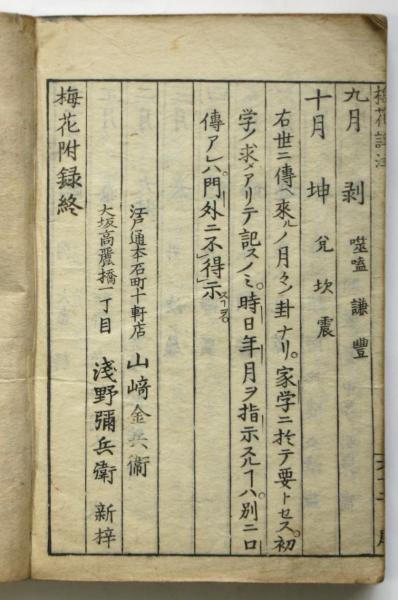 九月 剥 噬嗑 謙 豐
十月 坤 兌 坎 震
右世ニ傳ヘ來ルノ月タン卦ナリ。家学ニ於テ要トセス。初
学ノ求メアリテ記スノミ。時日年月ヲ指示スルヿハ別ニ口
傳アレハ門外ニ不得示スヿヲ
江戸通本石町十軒店 山﨑金兵衞
大坂高麗橋一丁目 淺野彌兵衞 新梓
梅花附録終